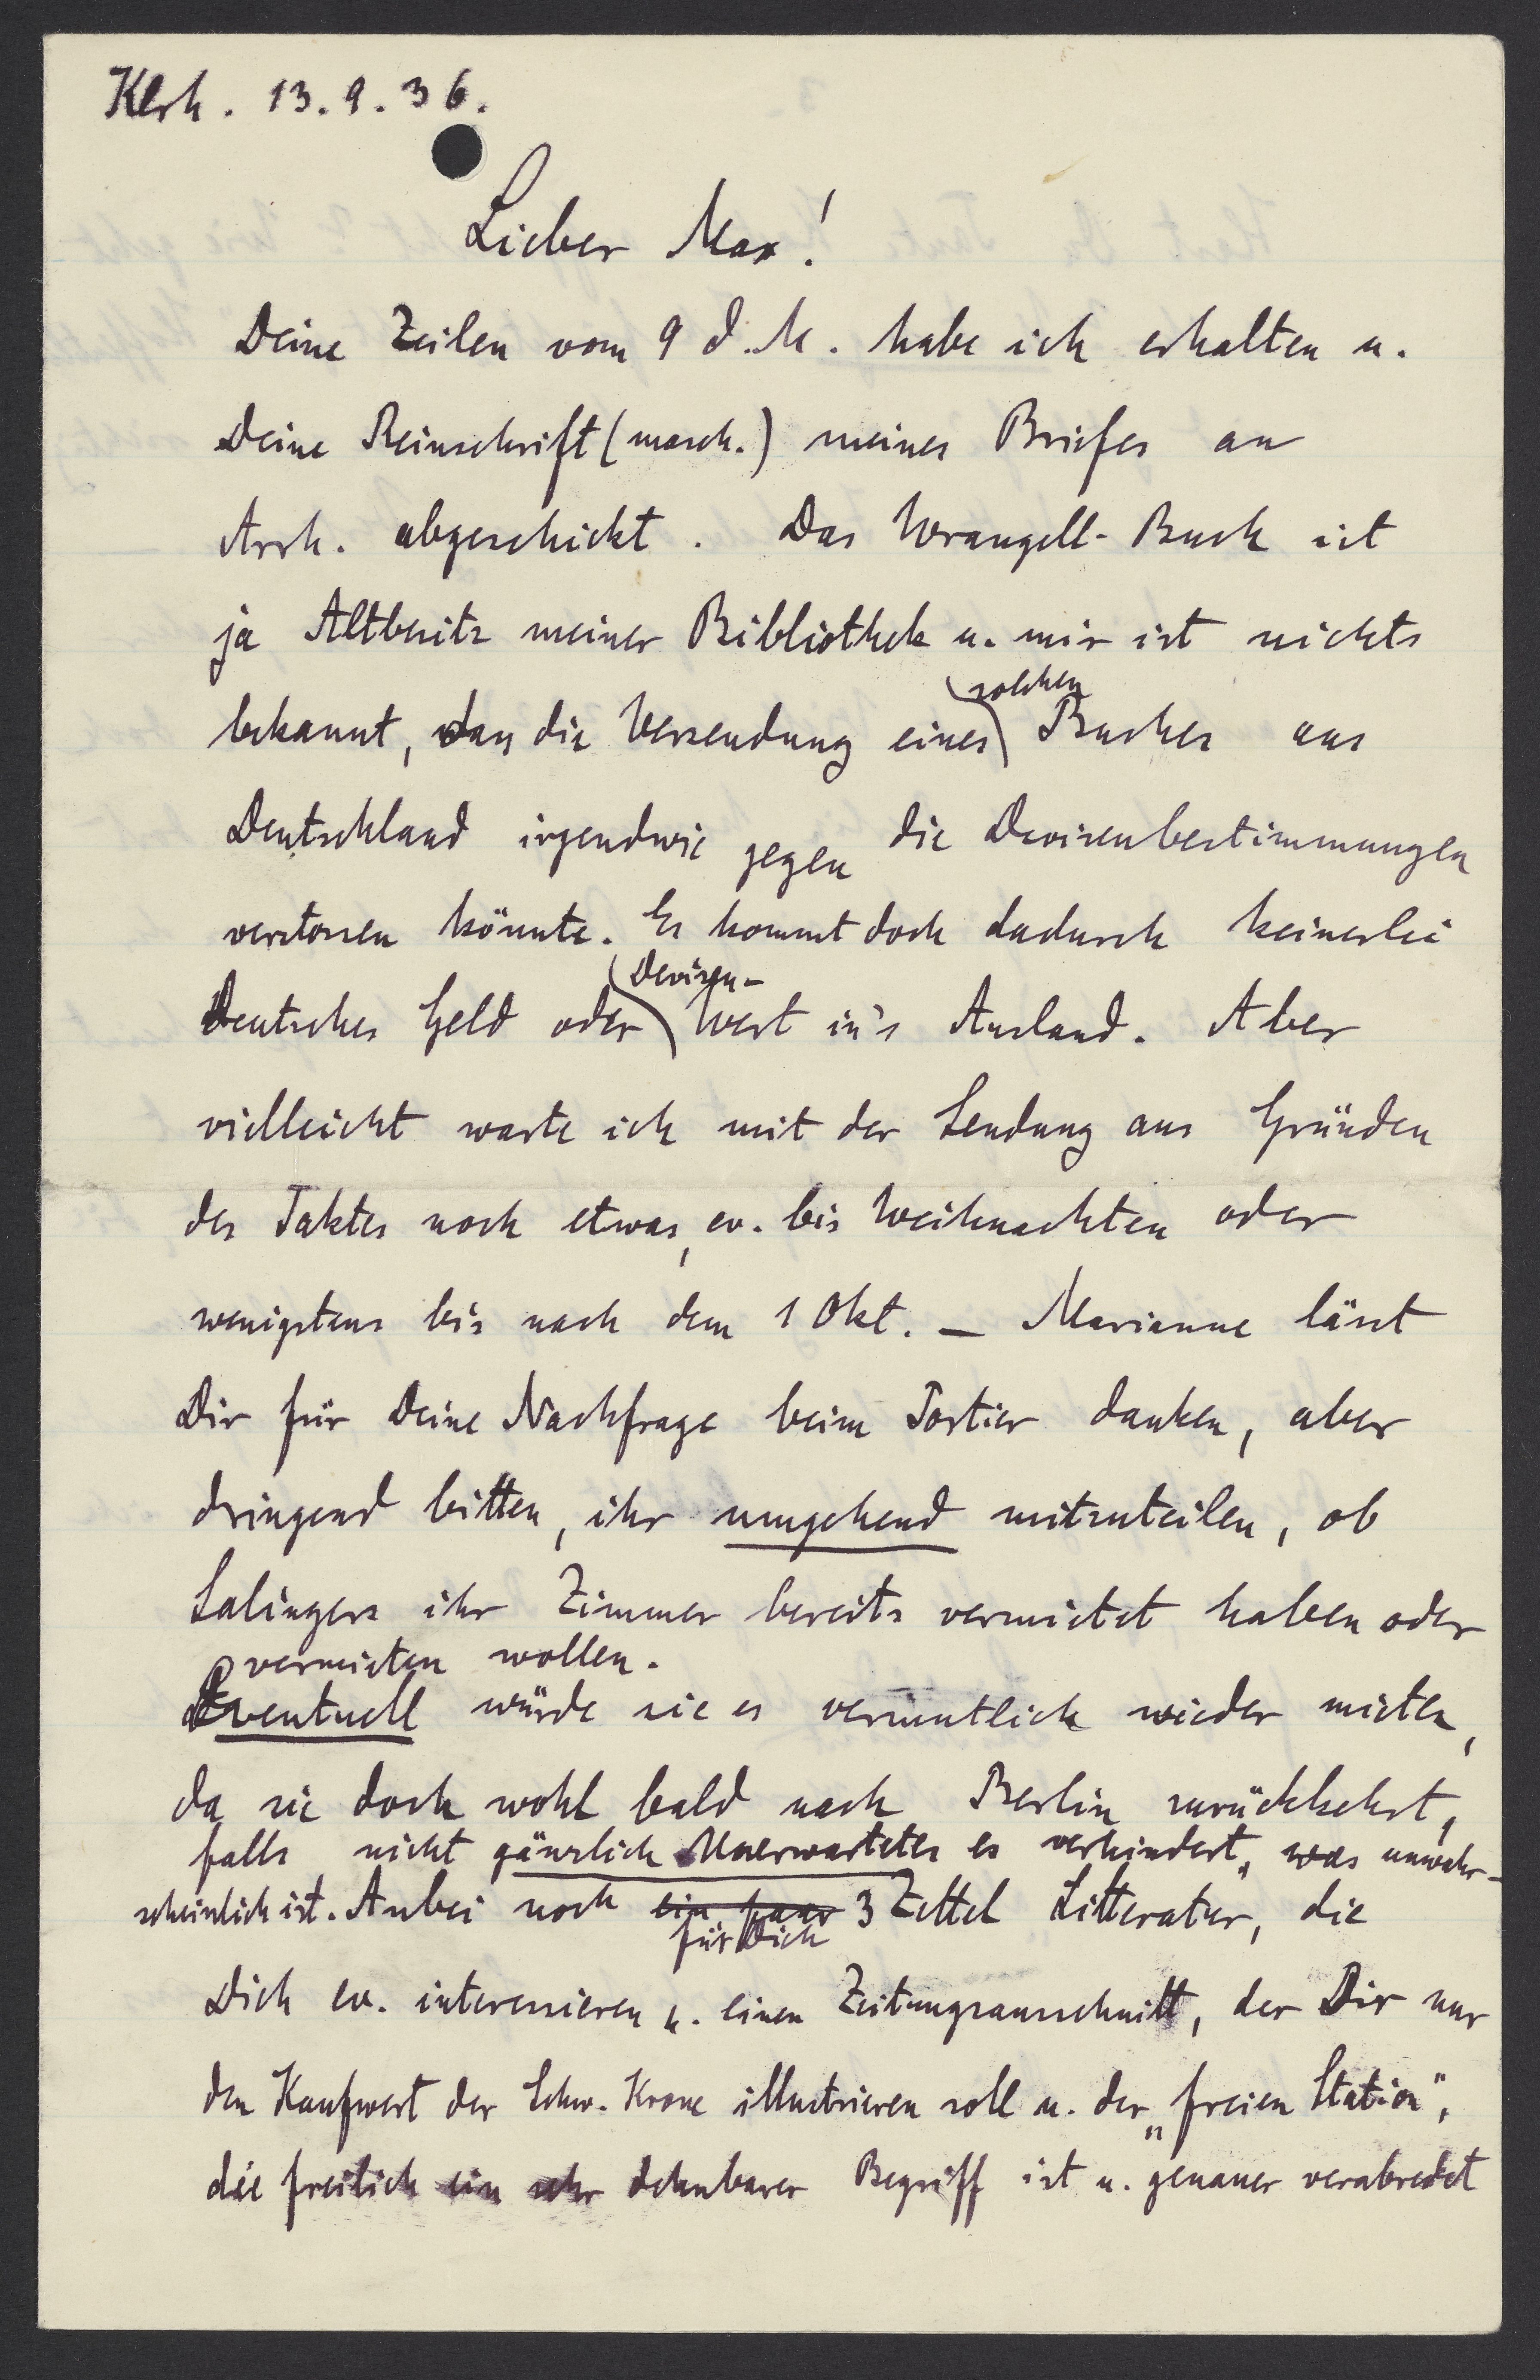 Klsh. 13.9.36.
Lieber Max!
Deine Zeilen vom 9 d. M. habe ich erhalten u.
Deine Reinschrift (masch.) meines Briefes an
Arrh. abgeschickt. Das Wrangell-Buch ist
ja Altbesitz meiner Bibliothek u. mir ist nichts
solchen
bekannt, dass die Versendung eines Buches aus
Deutschland irgendwie gegen die Devisenbestimmungen
verstossen könnte. Es kommt doch dadurch keinerlei
Devisen-
Deutsches Geld oder Wert in's Ausland. Aber
vielleicht warte ich mit der Sendung aus Gründen
des Taktes noch etwas, ev. bis Weihnachten oder
wenigstens bis nach dem 1 Okt. — Marianne lässt
Dir für Deine Nachfrage beim Portier danken, aber
dringend bitten, ihr umgehend mitzuteilen, ob
Salingers ihr Zimmer bereits vermietet haben oder
vermieten wollen.
Eventuell würde sie es vermutlich wieder mieten,
da sie doch wohl bald nach Berlin zurückkehrt,
falls nicht gänzlich Unerwartetes es verhindert, was unwahr-
scheinlich ist. Anbei noch ein paar 3 Zettel Litteratur, die
für Dich
Dich ev. interessieren u. einen Zeitungsausschnitt, der Dir nur
den Kaufwert der Schw. Krone illustrieren soll u. der „freien Station",
die freilich ein sehr dehnbarer Begriff ist u. genauer verabredet